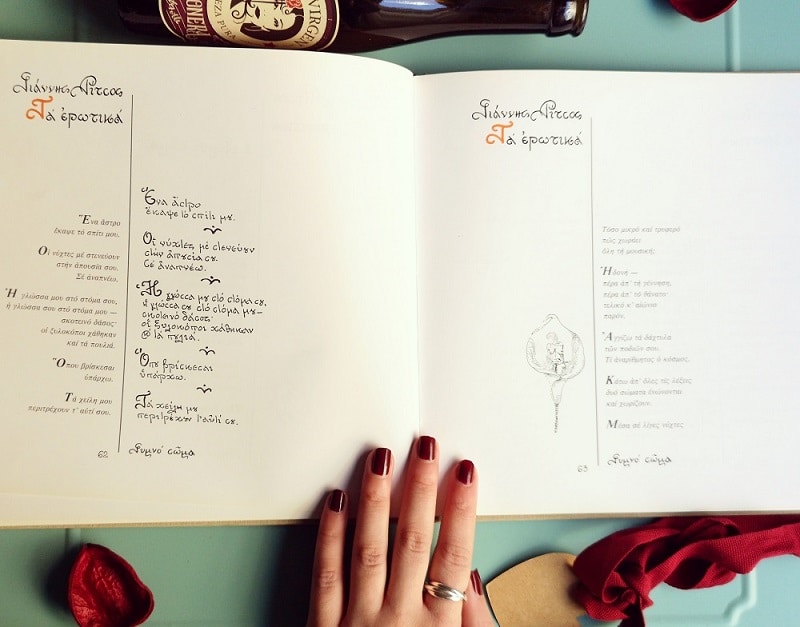 VIRGEN
Γιάννης Ρίτσος
Τὰ ἐρωτικά
Ἕνα ἄστρο
ἔκαψε τὸ σπίτι μου.
Οἱ νύχτες μὲ στενεύουν
στὴν ἀπουσία σου.
Σὲ ἀναπνέω.
Ἡ γλώσσα μου στὸ στόμα σου,
ἡ γλώσσα σου στὸ στόμα μου —
σκοτεινὸ δάσος·
οἱ ξυλοκόποι χάθηκαν
καὶ τὰ πουλιά.
Ὅπου βρίσκεσαι
ὑπάρχω.
Τὰ χείλη μου
περιτρέχουν τ' αὐτί σου.
Ἕνα ἄστρο
ἔκαψε τὸ σπίτι μου.
Οἱ νύχτες μὲ στενεύουν
στὴν ἀπουσία σου.
Σὲ ἀναπνέω.
Ἡ γλώσσα μου στὸ στόμα σου,
ἡ γλώσσα σου στὸ στόμα μου—
σκοτεινὸ δάσος·
οἱ ξυλοκόποι χάθηκαν
καὶ τὰ πουλιά.
Ὅπου βρίσκεσαι
ὑπάρχω.
Τὰ χείλη μου
περιτρέχουν τ' αὐτί σου.
62
Γυμνὸ σῶμα
Γιάννης Ρίτσος
Τὰ ἐρωτικά
Τόσο μικρὸ καὶ τρυφερὸ
πῶς χωράει
ὅλη τὴ μουσική;
Ἡδονὴ —
πέρα ἀπ' τὴ γέννηση,
πέρα ἀπ' τὸ θάνατο·
τελικὸ κ' αἰώνιο
παρόν.
Ἀγγίζω τὰ δάχτυλα
τῶν ποδιῶν σου.
Τί ἀναρίθμητος ὁ κόσμος.
Κάτω ἀπ' ὅλες τὶς λέξεις
δυὸ σώματα ἑνώνονται
καὶ χωρίζουν.
Μέσα σὲ λίγες νύχτες
63
Γυμνὸ σῶμα